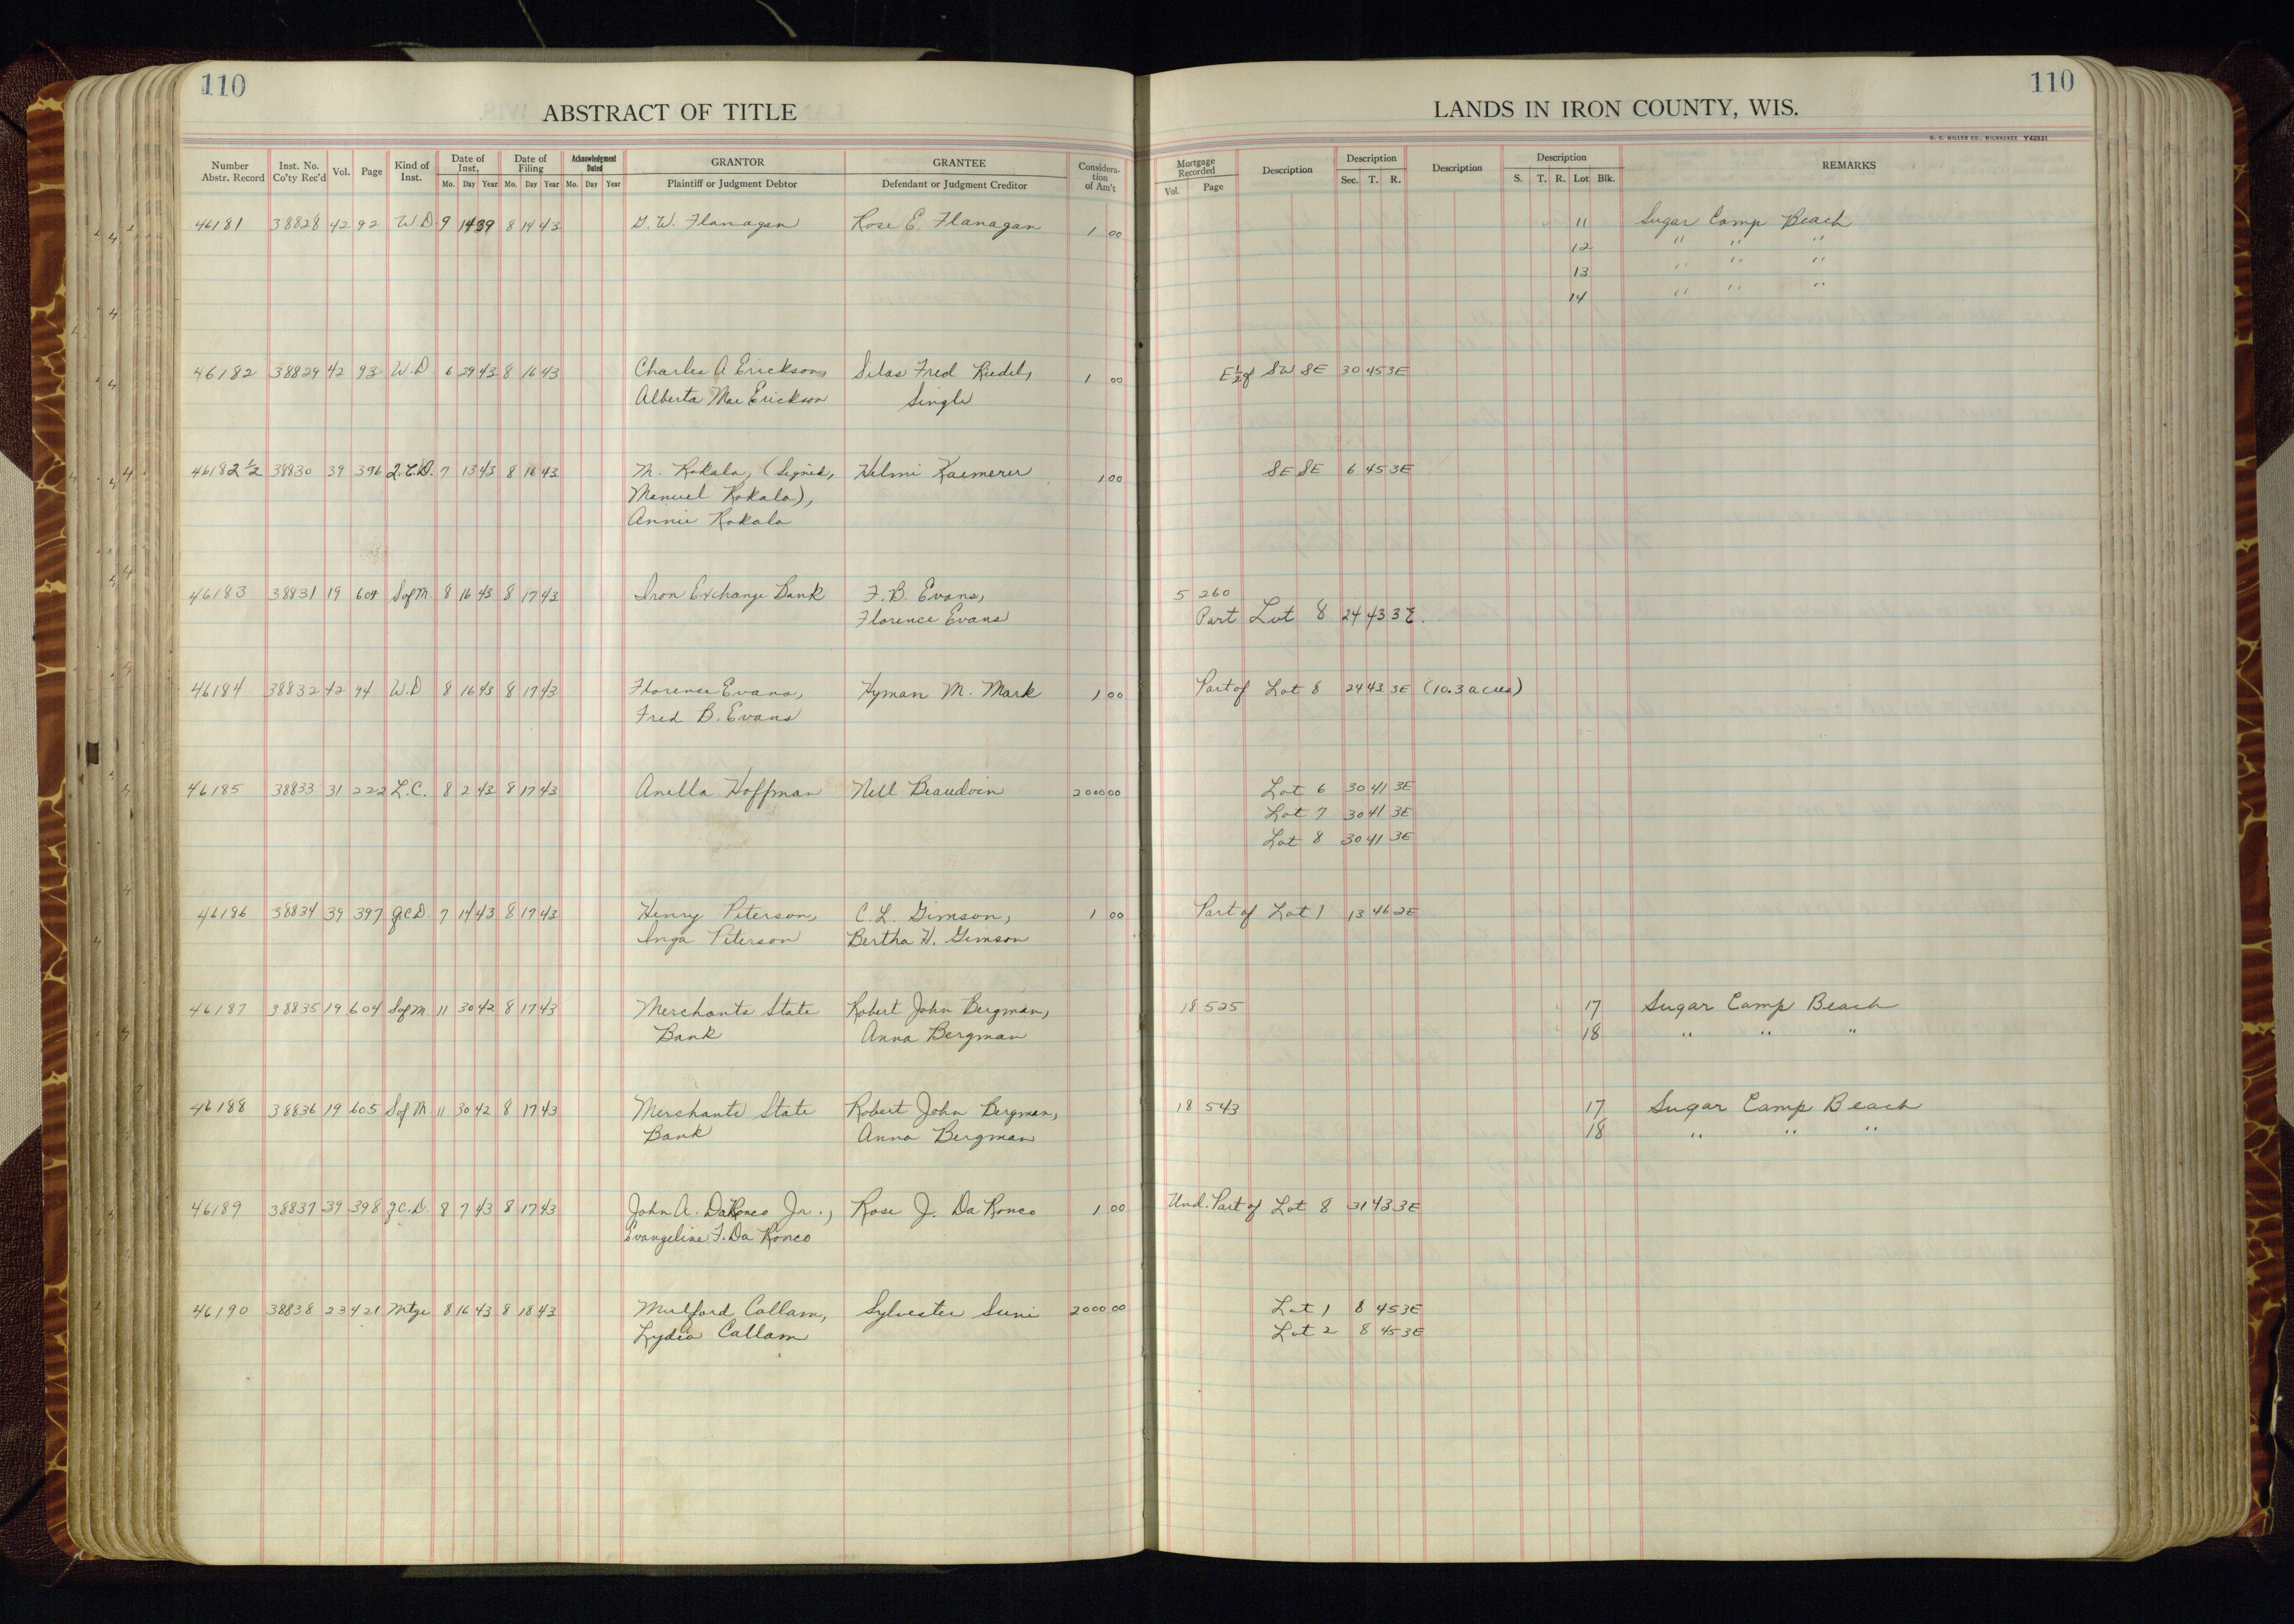 110
110
ABSTRACT OF TITLE
LANDS IN IRON COUNTY, WIS.
H. C. MILLER CO., MILWAUKEE Y42931
Number Abstr. Record Inst. No. Co'ty Rec'd Vol. Page Kind of Inst. Date of Inst. Mo. Day Year Date of Filing Mo. Day Year Acknowledgment Dated Mo. Day Year GRANTOR Plaintiff or Judgment Debtor GRANTEE Defendant or Judgment Creditor Consideration of Am't Mortgage Recorded Vol. Page Description Description Sec. T. R. Description Description S. T. R. Lot Blk. REMARKS
46181 38828 42 92 W D 9 14 39 8 14 43 G. W. Flanagan Rose E. Flanagan 1 00 11 Sugar Camp Beach
12 " " "
13 " " "
14 " " "
46182 38829 42 93 W.D 6 29 43 8 16 43 Charles A Erickson, Silas Fred Riedel, 1 00 E½ of SW SE 30 45 3E
Alberta Mae Erickson Single
46182½ 38830 39 396 Q.C.D. 7 13 43 8 16 43 M. Rokala, (Signed, Helmi Kaemerer 1 00 SE SE 6 45 3E
Manuel Rokala),
Annie Rokala
46183 38831 19 604 S of M 8 16 43 8 17 43 Iron Exchange Bank F. B. Evans, 5 260
Florence Evans Part Lot 8 24 43 3E.
46184 38832 42 94 W.D 8 16 43 8 17 43 Florence Evans, Hyman M. Mark 1 00 Part of Lot 8 24 43 3E (10.3 acres)
Fred B. Evans
46185 38833 31 222 L.C. 8 2 43 8 17 43 Anella Hoffman Nell Beaudoin 2000 00 Lot 6 30 41 3E
Lot 7 30 41 3E
Lot 8 30 41 3E
46186 38834 39 397 Q.C.D 7 14 43 8 17 43 Henry Peterson, C. L. Gimson, 1 00 Part of Lot 1 13 46 2E
Inga Peterson Bertha H. Gimson
46187 38835 19 604 S of M 11 30 42 8 17 43 Merchants State Robert John Bergman, 18 525 17 Sugar Camp Beach
Bank Anna Bergman 18 " " "
46188 38836 19 605 S of M 11 30 42 8 17 43 Merchants State Robert John Bergman, 18 543 17 Sugar Camp Beach
Bank Anna Bergman 18 " " "
46189 38837 39 398 Q.C.D. 8 7 43 8 17 43 John A. DaRonco Jr., Rose J. Da Ronco 1 00 Und. Part of Lot 8 31 43 3E
Evangeline F. Da Ronco
46190 38838 23 421 Mtge 8 16 43 8 18 43 Mulford Callam, Sylvester Suni 2000 00 Lot 1 8 45 3E
Lydia Callam Lot 2 8 45 3E